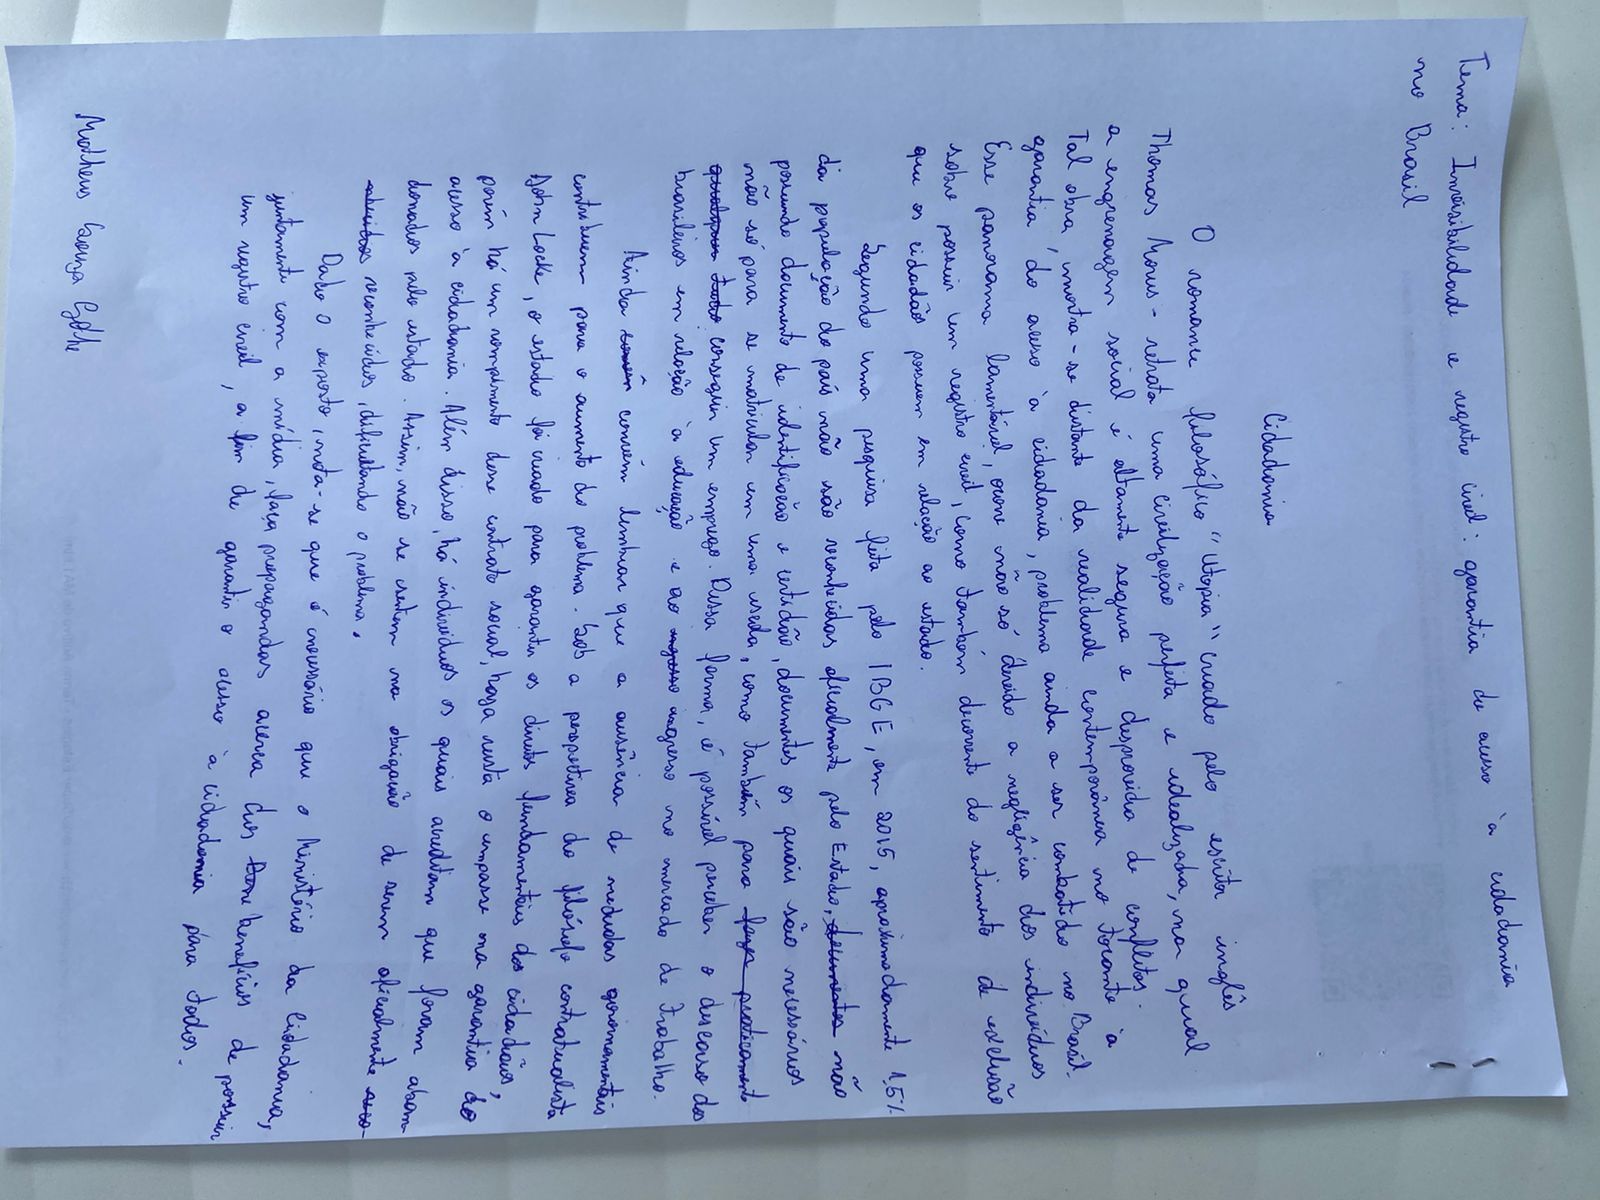 Tema: Invisibilidade e registro civil: garantia de acesso à cidadania
no Brasil
Cidadania
O romance filosófico "Utopia" criado pelo escritor inglês
Thomas Morus - retrata uma civilização perfeita e idealizada, na qual
a engrenagem social é altamente segura e desprovida de conflitos.
Tal obra, mostra-se distante da realidade contemporânea no tocante à
garantia do acesso à cidadania, problema ainda a ser combatido no Brasil.
Esse panorama lamentável, ocorre não só devido a negligência dos indivíduos
sobre possuir um registro civil, como também decorrente do sentimento de exclusão
que os cidadãos possuem em relação ao estado.
Segundo uma pesquisa feita pelo IBGE, em 2015, aproximadamente 1,5%
da população do país não são reconhecidas oficialmente pelo Estado, documentos não
possuindo documento de identificação e certidão, documentos os quais são necessários
não só para se matricular em uma escola, como também para fazer praticamente
qualquer tudo conseguir um emprego. Dessa forma, é possível perceber o descaso dos
brasileiros em relação à educação e ao ingresso ingresso no mercado de trabalho.
Ainda convém lembrar que a ausência de medidas governamentais
contribuem para o aumento do problema. Sob a perspectiva do filósofo contratualista
John Locke, o estado foi criado para garantir os direitos fundamentais dos cidadãos,
porém há um rompimento desse contrato social, haja vista o impasse na garantia do
acesso à cidadania. Além disso, há indivíduos os quais acreditam que foram aban-
donados pelo estado. Assim, não se sentem na obrigação de serem oficialmente reco-
nhecidos reconhecidos, dificultando o problema.
Dado o exposto, nota-se que é necessário que o Ministério da Cidadania,
juntamente com a mídia, faça propagandas acerca dos Bene benefícios de possuir
um registro civil, a fim de garantir o acesso à cidadania para todos.
Matheus Souza Göthe